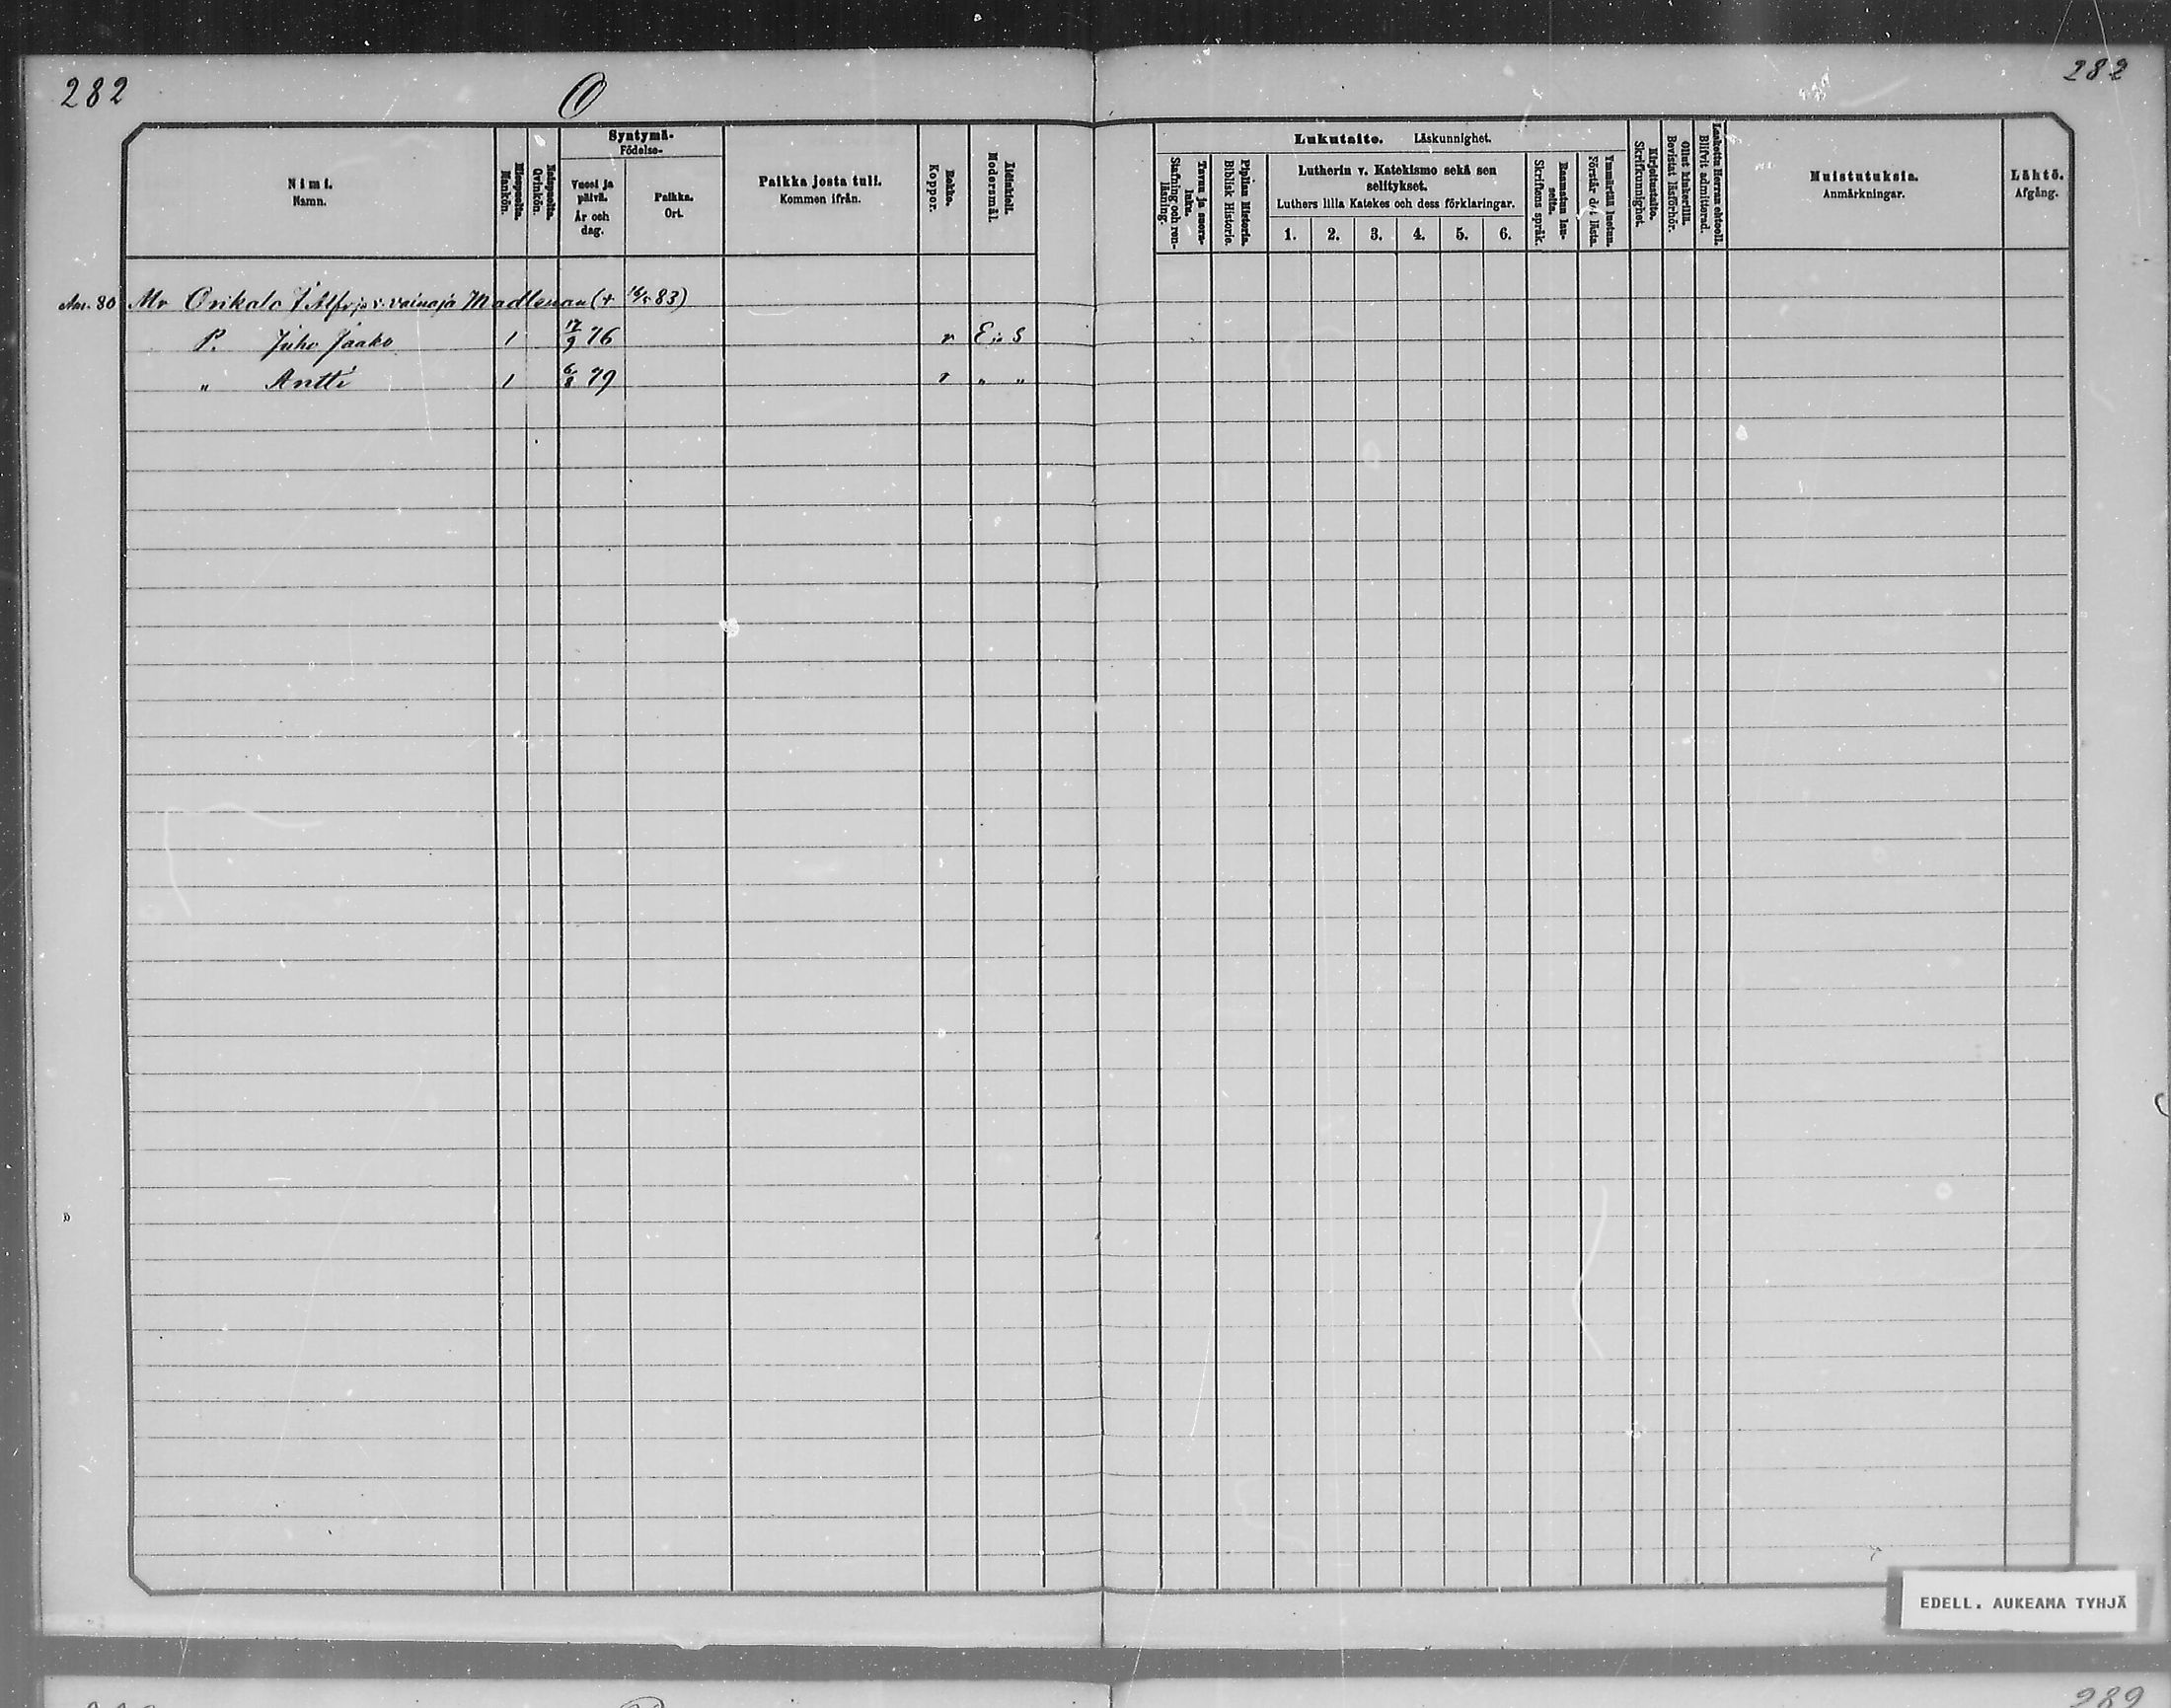 282
O
282
Nimi.
Namn.
Miespuolia.
Mankön.
Naispuolia.
Qvinkön.
Syntymä-
Födelse-
Vuosi ja päivä.
År och dag.
Paikka.
Ort.
Paikka josta tuli.
Kommen ifrån.
Rokko.
Koppor.
Äidinkieli.
Modersmål.
Lukutaito. Läskunnighet.
Tavuu ja suora-luku.
Stafning och ren-läsning.
Piplian Historia.
Biblisk Historie.
Lutherin v. Katekismo sekä sen
selitykset.
Luthers lilla Katekes och dess förklaringar.
1. 2. 3. 4. 5. 6.
Raamatun lau-seita.
Skriftens språk.
Ymmärtää luetun.
Förstår det lästa.
Kirjoitustaito.
Skrifkunnighet.
Ollut kinkerillä.
Bevistat läsförhör.
Laskettu Herran ehtooll.
Blifvit admitterad.
Muistutuksia.
Anmärkningar.
Lähtö.
Afgång.
80 Mr Orikalo J. Alfr ja v. vainaja Madlenan (+ 83)
P. Juho Jaako 1 17/9 76 r E. S
" Antti 1 6/8 79 r " "
EDELL. AUKEAMA TYHJÄ